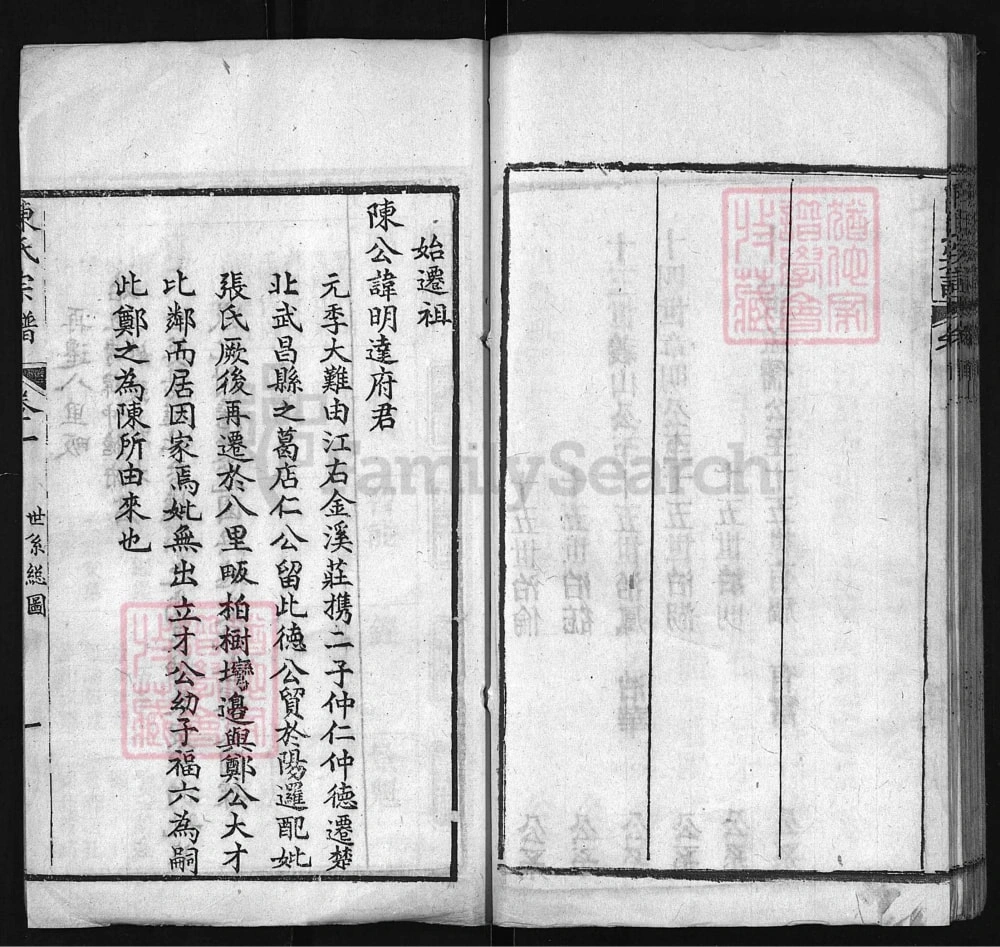 始遷祖
陳公諱明達府君
元季大難由江右金溪莊携二子仲仁仲德遷楚
北武昌縣之葛店仁公留此德公貿於陽邏配妣
張氏厥後再遷於八里畈柏樹塆邊與鄭公大才
比鄰而居因家焉妣無出立才公幼子福六為嗣
此鄭之為陳所由來也
陳氏宗譜 卷一 世系總圖 一
FamilySearch